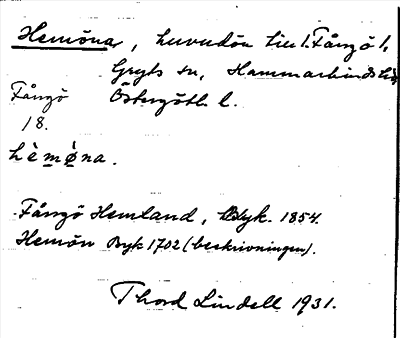 Hemöna, huvudön till 1. Fångö 1,
Gryts sn, Hammarkinds hd,
Fångö Östergötl. l.
18.
hèmøna.
Fångö Hemland, Byk. 1854.
Hemön Byk 1702 (beskrivningen).
Thord Lindell 1931.